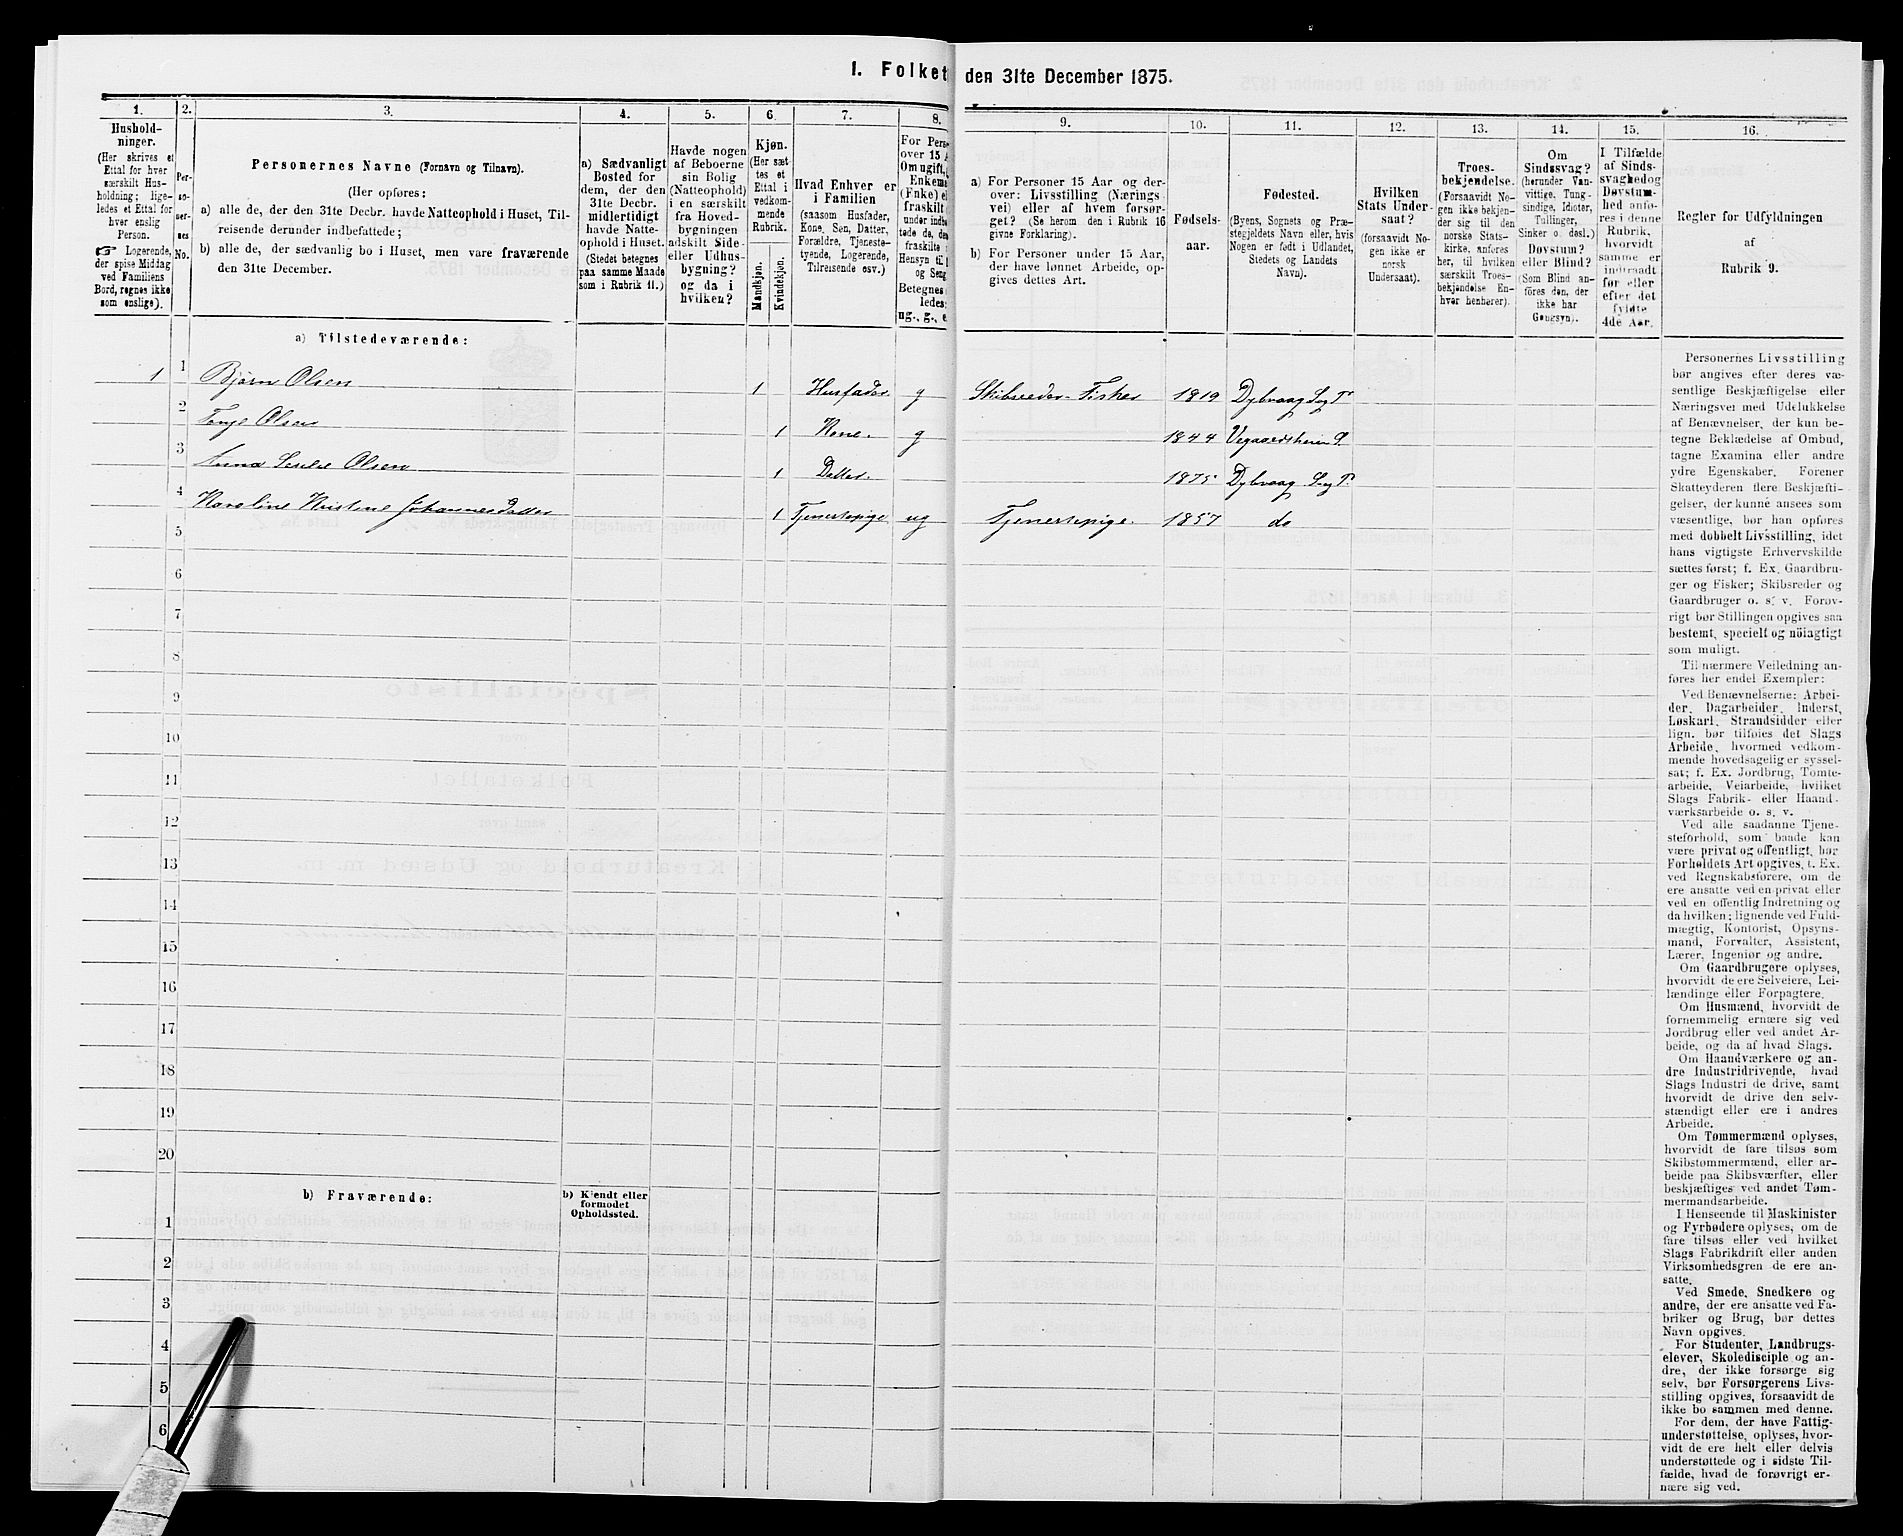 1. Folket den 31te December 1875.
1. 2. 3. 4. 5. 6. 7. 8. 9. 10. 11. 12. 13. 14. 15. 16.
Hushold-
ninger.
(Her skrives et
Ettal for hver
særskilt Hus-
holdning; lige-
ledes et Ettal for
hver enslig
Person.
☞ Logerende,
der spise Middag
ved Familiens
Bord, regnes ikke
som enslige).
Per-
so-
ner-
nes
No.
Personernes Navne (Fornavn og Tilnavn).
(Her opføres:
a) alle de, der den 31te Decbr. havde Natteophold i Huset, Til-
reisende derunder indbefattede;
b) alle de, der sædvanlig bo i Huset, men vare fraværende
den 31te December.
a) Sædvanligt
Bosted for
dem, der den
31te Decbr.
midlertidigt
havde Natte-
ophold i Huset.
(Stedet betegnes
paa samme Maade
som i Rubrik 11.)
Havde nogen
af Beboerne
sin Bolig
(Natteophold)
i en særskilt
fra Hoved-
bygningen
adskilt Side-
eller Udhus-
bygning?
og da i
hvilken?
Kjøn.
(Her sæt-
tes et
Ettal i
vedkom-
mende
Rubrik.
Mandkjøn.
Kvindekjøn.
Hvad Enhver er
i Familien
(saasom Husfader,
Kone, Søn, Datter,
Forældre, Tjeneste-
tyende, Logerende,
Tilreisende osv.)
For Pers
over 15 A
Om ugift,
Enkema
(Enke) e
fraskilt
under indbe
tede de, de
fraskilte
Hensyn til
og Seng
Betegnes
ledes:
ug., g., e
a) For Personer 15 Aar og der-
over: Livsstilling (Nærings-
vei) eller af hvem forsør-
get? (Se herom den i Rubrik 16
givne Forklaring).
b) For Personer under 15 Aar,
der have lønnet Arbeide, op-
gives dettes Art.
Fødsels-
aar.
Fødested.
(Byens, Sognets og Præ-
stegjeldets Navn eller, hvis
Nogen er født i Udlandet,
Stedets og Landets
Navn).
Hvilken
Stats Under-
saat?
(forsaavidt No-
gen ikke er
norsk
Undersaat).
Troes-
bekjendelse.
(Forsaavidt No-
gen ikke bekjen-
der sig til den
norske Stats-
kirke, anføres
her, til hvilken
særskilt Troes-
bekjendelse En-
hver henhører).
Om
Sindssvag?
(herunder Van-
vittige, Tung-
sindige, Idioter,
Tullinger,
Sinker o. desl.)
Døvstum?
eller Blind?
(Som Blind an-
føres den, der
ikke har
Gangsyn).
I Tilfælde
af Sinds-
svaghed og
Døvstum-
hed anfø-
res i denne
Rubrik,
hvorvidt
samme er
indtraadt
før eller
efter det
fyldte
4de Aar.
Regler for Udfyldningen
af
Rubrik 9.
a) Tilstedeværende:
1 1 Bjørn Olsen 1 Husfader g Skibsreder-Fisker 1819 Dybvaag S. og P.
2 Tonje Olsen 1 Kone. g 1844 Vegaardsheien S.
3 Anna Olsen 1 Datter. 1875 Dybvaag S. og P.
4 Karoline Kristine Johannesdatter 1 Tjenestepige ug Tjenestepige. 1857 do
5
6
7
8
9
10
11
12
13
14
15
16
17
18
19
20
b) Fraværende:
b) Kjendt eller
formodet
Opholdssted.
1
2
3
4
5
6
Personernes Livsstilling
bør angives efter deres væ-
sentlige Beskjæftigelse eller
Næringsvei med Udelukkelse
af Benævnelser, der kun be-
tegne Beklædelse af Ombud,
tagne Examina eller andre
ydre Egenskaber. Forener
Skatteyderen flere Beskjæfti-
gelser, der kunne ansees som
væsentlige, bør han opføres
med dobbelt Livsstilling, idet
hans vigtigste Erhvervskilde
sættes først; f. Ex. Gaardbru-
ger og Fisker; Skibsreder og
Gaardbruger o. s. v. Forøv-
rigt bør Stillingen opgives saa
bestemt, specielt og nöiagtigt
som muligt.
Til nærmere Veiledning an-
føres her endel Exempler:
Ved Benævnelserne: Arbei-
der, Dagarbeider, Inderst,
Løskarl, Strandsidder eller
lign. bør tilføies det Slags
Arbeide, hvormed vedkom-
mende hovedsagelig er syssel-
sat; f. Ex. Jordbrug, Tomte-
arbeide, Veiarbeide, hvilket
Slags Fabrik- eller Haand-
værksarbeide o. s. v.
Ved alle saadanne Tjene-
steforhold, som baade kan
være privat og offentligt, bør
Forholdets Art opgives, f. Ex.
ved Regnskabsførere, om de
ere ansatte ved en privat eller
ved en offentlig Indretning og
da hvilken; lignende ved Fuld-
mægtig, Kontorist, Opsyns-
mand, Forvalter, Assistent,
Lærer, Ingeniør og andre.
Om Gaardbrugere oplyses,
hvorvidt de ere Selveiere, Lei-
lændinge eller Forpagtere.
Om Husmænd, hvorvidt de
fornemmelig ernære sig ved
Jordbrug eller ved andet Ar-
beide, og da af hvad Slags.
Om Haandværkere og an-
dre Industridrivende, hvad
Slags Industri de drive, samt
hvorvidt de drive den selv-
stændigt eller ere i andres
Arbeide.
Om Tømmermænd oplyses,
hvorvidt de fare tilsøs som
Skibstømmermænd, eller ar-
beide paa Skibsværfter, eller
beskjæftiges ved andet Tøm-
mermandsarbeide.
I Henseende til Maskinister
og Fyrbødere oplyses, om de
fare tilsøs eller ved hvilket
Slags Fabrikdrift eller anden
Virksomhedsgren de ere an-
satte.
Ved Smede, Snedkere og
andre, der ere ansatte ved Fa-
briker og Brug, bør dettes
Navn opgives.
For Studenter, Landbrugs-
elever, Skoledisciple og an-
dre, der ikke forsørge sig
selv, bør Forsørgerens Livs-
stilling opgives, forsaavidt de
ikke bo sammen med denne.
For dem, der have Fattig-
understøttelse, oplyses, hvor-
vidt de ere helt eller delvis
understøttede og i sidste Til-
fælde, hvad de forøvrigt er-
nære sig ved.